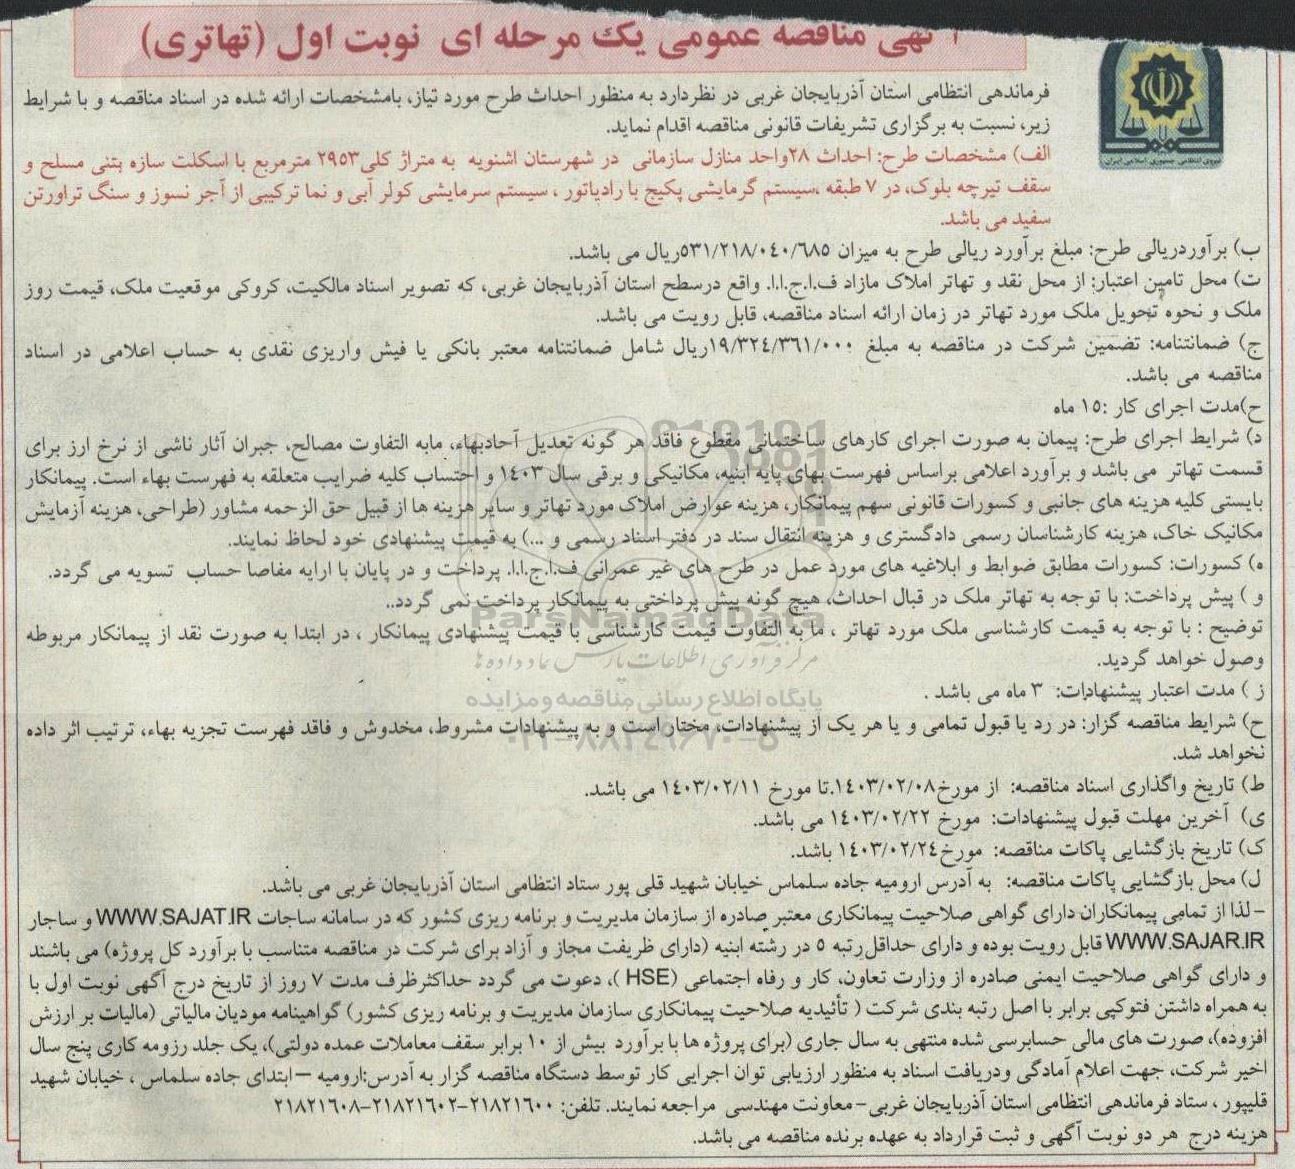 آگهی مناقصه عمومی یک مرحله ای نوبت اول (تهاتری)
نیروی انتظامی جمهوری اسلامی ایران
فرماندهی انتظامی استان آذربایجان غربی در نظردارد به منظور احداث طرح مورد نیاز، بامشخصات ارائه شده در اسناد مناقصه و با شرایط
زیر، نسبت به برگزاری تشریفات قانونی مناقصه اقدام نماید.
الف) مشخصات طرح: احداث ۲۸واحد منازل سازمانی در شهرستان اشنویه به متراژ کلی۲۹۵۳ مترمربع با اسکلت سازه بتنی مسلح و
سقف تیرچه بلوک، در ۷ طبقه ،سیستم گرمایشی پکیج با رادیاتور ، سیستم سرمایشی کولر آبی و نما ترکیبی از آجر نسوز و سنگ تراورتن
سفید می باشد.
ب) برآوردریالی طرح: مبلغ برآورد ریالی طرح به میزان ۵۳۱/۲۱۸/۰۴۰/۶۸۵ریال می باشد.
ت) محل تامین اعتبار: از محل نقد و تهاتر املاک مازاد ف.ا.ج.ا.ا. واقع درسطح استان آذربایجان غربی، که تصویر اسناد مالکیت، کروکی موقعیت ملک، قیمت روز
ملک و نحوه تحویل ملک مورد تهاتر در زمان ارائه اسناد مناقصه، قابل رویت می باشد.
ج) ضمانتنامه: تضمین شرکت در مناقصه به مبلغ ۱۹/۳۲۴/۳۶۱/۰۰۰ریال شامل ضمانتنامه معتبر بانکی یا فیش واریزی نقدی به حساب اعلامی در اسناد
مناقصه می باشد.
ح)مدت اجرای کار :۱۵ ماه
د) شرایط اجرای طرح: پیمان به صورت اجرای کارهای ساختمانی مقطوع فاقد هر گونه تعدیل آحادبهاء، مابه التفاوت مصالح، جبران آثار ناشی از نرخ ارز برای
قسمت تهاتر می باشد و برآورد اعلامی براساس فهرست بهای پایه ابنیه، مکانیکی و برقی سال ۱۴۰۳ و احتساب کلیه ضرایب متعلقه به فهرست بهاء است. پیمانکار
بایستی کلیه هزینه های جانبی و کسورات قانونی سهم پیمانکار، هزینه عوارض املاک مورد تهاتر و سایر هزینه ها از قبیل حق الزحمه مشاور (طراحی، هزینه آزمایش
مکانیک خاک، هزینه کارشناسان رسمی دادگستری و هزینه انتقال سند در دفتر اسناد رسمی و ...) به قیمت پیشنهادی خود لحاظ نمایند.
ه) کسورات: کسورات مطابق ضوابط و ابلاغیه های مورد عمل در طرح های غیر عمرانی ف.ا.ج.ا.ا. پرداخت و در پایان با ارایه مفاصا حساب تسویه می گردد.
و ) پیش پرداخت: با توجه به تهاتر ملک در قبال احداث، هیچ گونه پیش پرداختی به پیمانکار پرداخت نمی گردد..
ParsNamadData
توضیح : با توجه به قیمت کارشناسی ملک مورد تهاتر ، ما به التفاوت قیمت کارشناسی با قیمت پیشنهادی پیمانکار ، در ابتدا به صورت نقد از پیمانکار مربوطه
وصول خواهد گردید.
مرکز فرآوری اطلاعات پارس نماد داده ها
ز ) مدت اعتبار پیشنهادات: ۳ ماه می باشد .
پایگاه اطلاع رسانی مناقصه و مزایده
ح) شرایط مناقصه گزار: در رد یا قبول تمامی و یا هر یک از پیشنهادات، مختار است و به پیشنهادات مشروط، مخدوش و فاقد فهرست تجزیه بهاء، ترتیب اثر داده
نخواهد شد.
۰۲۱-۸۸۳۴۹۶۷۰-۵
ط) تاریخ واگذاری اسناد مناقصه: از مورخ۱۴۰۳/۰۲/۰۸.تا مورخ ۱۴۰۳/۰۲/۱۱ می باشد.
ی) آخرین مهلت قبول پیشنهادات: مورخ ۱۴۰۳/۰۲/۲۲ می باشد.
ک) تاریخ بازگشایی پاکات مناقصه: مورخ۱۴۰۳/۰۲/۲۴ باشد.
ل) محل بازگشایی پاکات مناقصه: به آدرس ارومیه جاده سلماس خیابان شهید قلی پور ستاد انتظامی استان آذربایجان غربی می باشد.
- لذا از تمامی پیمانکاران دارای گواهی صلاحیت پیمانکاری معتبر صادره از سازمان مدیریت و برنامه ریزی کشور که در سامانه ساجات WWW.SAJAT.IR و ساجار
WWW.SAJAR.IR قابل رویت بوده و دارای حداقل رتبه ۵ در رشته ابنیه (دارای ظریفت مجاز و آزاد برای شرکت در مناقصه متناسب با برآورد کل پروژه) می باشند
و دارای گواهی صلاحیت ایمنی صادره از وزارت تعاون، کار و رفاه اجتماعی (HSE )، دعوت می گردد حداکثرظرف مدت ۷ روز از تاریخ درج آگهی نوبت اول با
به همراه داشتن فتوکپی برابر با اصل رتبه بندی شرکت ( تأئیدیه صلاحیت پیمانکاری سازمان مدیریت و برنامه ریزی کشور) گواهینامه مودیان مالیاتی (مالیات بر ارزش
افزوده)، صورت های مالی حسابرسی شده منتهی به سال جاری (برای پروژه ها با برآورد بیش از ۱۰ برابر سقف معاملات عمده دولتی)، یک جلد رزومه کاری پنج سال
اخیر شرکت، جهت اعلام آمادگی ودریافت اسناد به منظور ارزیابی توان اجرایی کار توسط دستگاه مناقصه گزار به آدرس:ارومیه –ابتدای جاده سلماس ، خیابان شهید
قلیپور ، ستاد فرماندهی انتظامی استان آذربایجان غربی-معاونت مهندسی مراجعه نمایند. تلفن: ۲۱۸۲۱۶۰۰-۲۱۸۲۱۶۰۲-۲۱۸۲۱۶۰۸
هزینه درج هر دو نوبت آگهی و ثبت قرارداد به عهده برنده مناقصه می باشد.